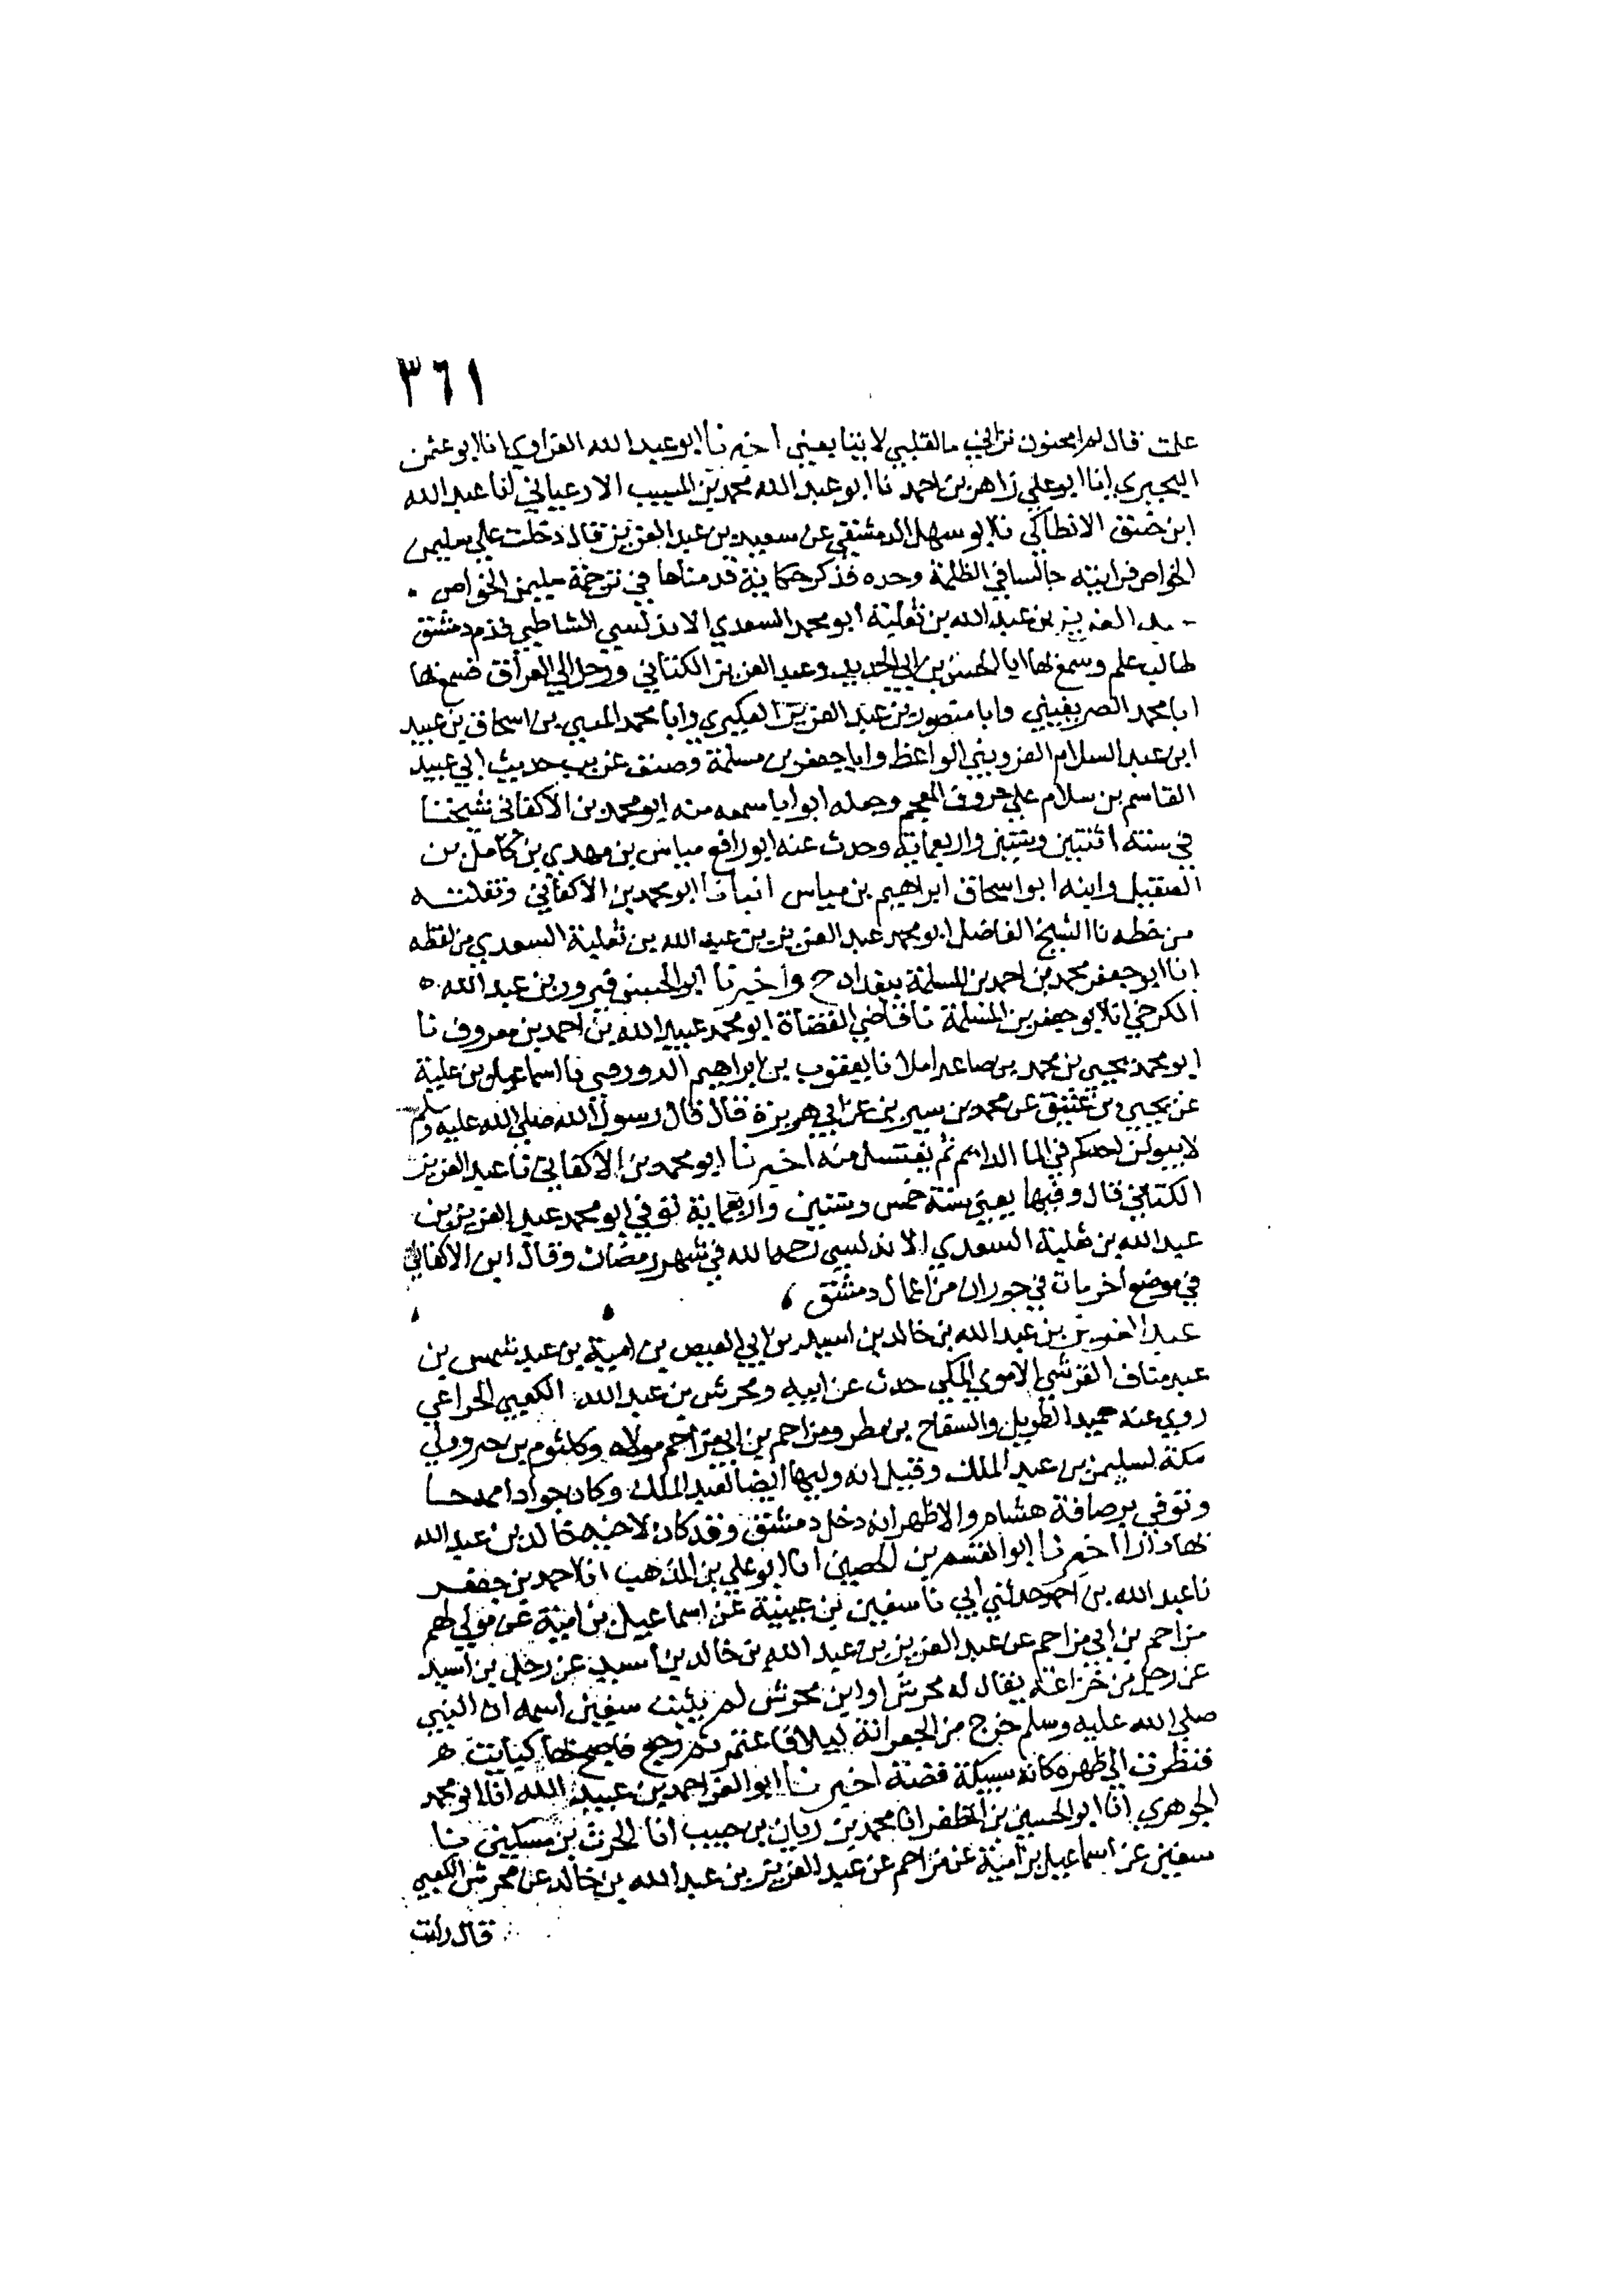 ٣٦١
علمت قال لهم امجنون نزالخب مالقلبي لابنا يعيني اخبرنا ابو عبد الله الفراوي انا ابو عثمن
البحيري انا ابو علي زاهر بن احمد نا ابو عبد الله محمد بن المسيب الارغياني نا عبد الله
ابن خبيق الانطاكي نا ابو سهل الدمشقي عن سعيد بن عبد العزيز قال دخلت علي سليمن
الخواص فرايته جالسا في الظلمة وحده فذكر حكاية قدمناها في ترجمة سليمن الخواص
عبد العزيز بن عبد الله بن ثعلبة ابو محمد السعدي الاندلسي الشاطبي قدم دمشق
طالب علم وسمع بها ابا الحسن بن ابي الحديد وعبد العزيز الكتاني ورحل الي العراق فسمع بها
ابا محمد الصريفيني وابا منصور بن عبد العزيز العكبري وابا محمد المعبي بن اسحاق بن عبيد
ابن عبد السلام القزويني الواعظ وابا جعفر بن مسلمة وصنف غريب حديث ابي عبيد
القاسم بن سلام علي حروف المعجم وجعله ابوابا سمعه منه ابو محمد بن الاكفاني شيخنا
في سنة اثنتين وستين واربعماية وحدث عنه ابو رافع مياس بن مهدي بن كامل بن
الصقيل وابنه ابو اسحاق ابراهيم بن مياس انبانا ابو محمد بن الاكفاني ونقلته
من خطه نا الشيخ الفاضل ابو محمد عبد العزيز بن عبد الله بن ثعلبة السعدي من لفظه
انا ابو جعفر محمد بن احمد بن المسلمة ببغداد ح واخبرنا ابو الحسن فيروز بن عبد الله
الكرخي انا ابو جعفر بن المسلمة نا قاضي القضاة ابو محمد عبيد الله بن احمد بن معروف نا
ابو محمد يحيي بن محمد بن صاعد املا نا يعقوب بن ابراهيم الدورقي نا اسماعيل بن علية
عن يحيي بن عتيق عن محمد بن سيرين عن ابي هريرة قال قال رسول الله صلي الله عليه وسلم
لا يبولن احدكم في الما الدايم ثم يغتسل منه اخبرنا ابو محمد بن الاكفاني نا عبد العزيز
الكتاني قال وفيها يعني سنة خمس وستين واربعماية توفي ابو محمد عبد العزيز بن
عبد الله بن ثعلبة السعدي الاندلسي رحمه الله في شهر رمضان وقال ابن الاكفاني
في موضع اخر مات في حوران من اعمال دمشق
عبد العزيز بن عبد الله بن خالد بن اسيد بن ابي العيص بن امية بن عبد شمس بن
عبد مناف القرشي الاموي المكي حدث عن ابيه ومحرش بن عبد الله الكعبي الخزاعي
روي عنه حميد الطويل والسفاح بن مطر ومزاحم بن ابي مزاحم مولاه وكلثوم بن جبر وولي
مكة لسليمن بن عبد الملك وقيل انه وليها ايضا لعبد الملك وكان جوادا ممدحا
وتوفي برصافة هشام والاظهر انه دخل دمشق وقد كان لاخيه خالد بن عبد الله
بها دارا اخبرنا ابو القسم بن الحصين انا ابو علي بن المذهب انا احمد بن جعفر
نا عبد الله بن احمد حدثني ابي نا سفين بن عيينة عن اسماعيل بن امية عن مولي لهم
مزاحم بن ابي مزاحم عن عبد العزيز بن عبد الله بن خالد بن اسيد عن رجل بن اسيد
عن رجل من خزاعة يقال له محرش او ابن محرش لم يثبت سفين اسمه ان النبي
صلي الله عليه وسلم خرج من الجعرانة ليلا فاعتمر ثم رجع فاصبح بها كبايت
فنظرت الي ظهره كانه سبيكة فضة اخبرنا ابو العز احمد بن عبيد الله انا ابو محمد
الجوهري انا ابو الحسين بن المظفر انا محمد بن زبان بن حبيب انا الحرث بن مسكين نا
سفين عن اسماعيل بن امية عن مزاحم عن عبد العزيز بن عبد الله بن خالد عن محرش الكعبي
قال رايت